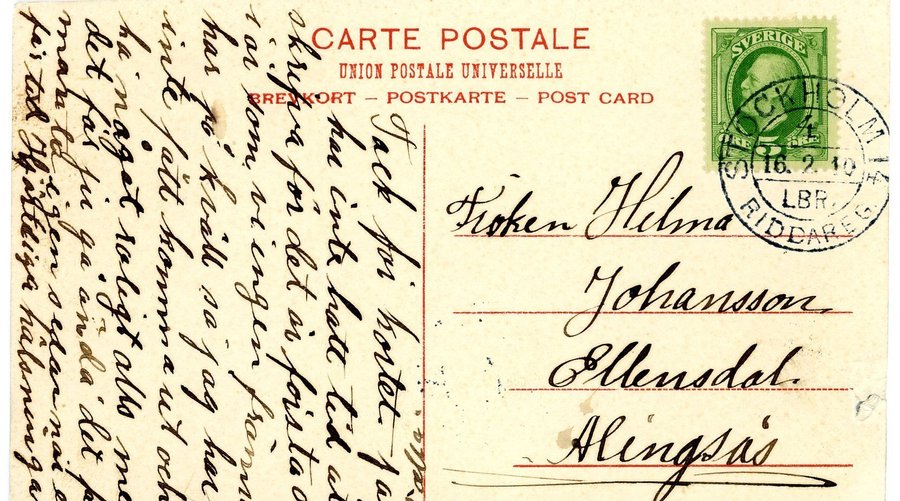 CARTE POSTALE
UNION POSTALE UNIVERSELLE
BREVKORT – POSTKARTE – POST CARD
SVERIGE
5 ÖRE
STOCKHOLM 14
4
16.2.10
LBR.
RIDDAREG
Fröken Hilma
Johansson
Ellensdal.
Alingsås
Tack för kortet ja
har inte hatt tid at
skrifva för det är första
har jo kväll så jag har
inte fått komma ut och
ha något roligt alls me
det får ju gå ändå det
hälsninga